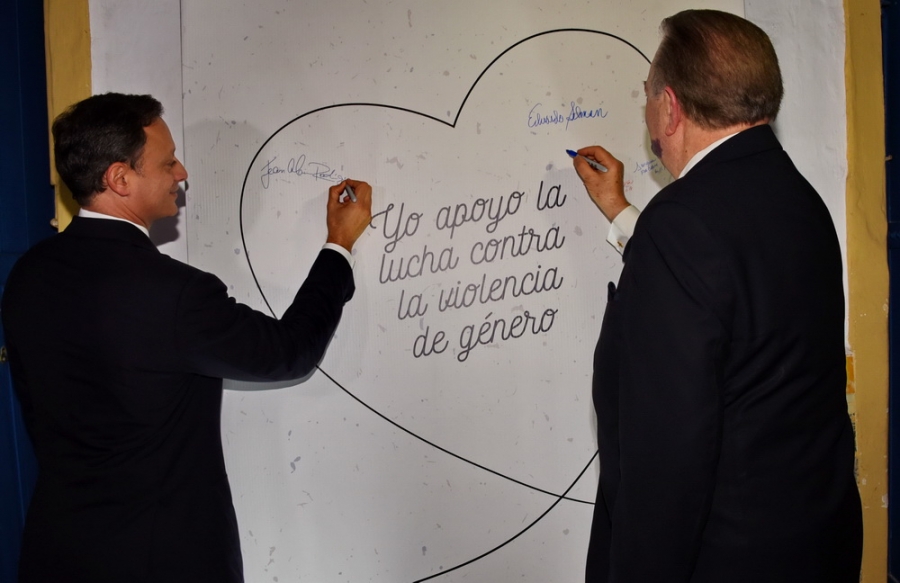 Eduardo Selman
Jean Alain Rodríguez
Yo apoyo la
lucha contra
la violencia
de género